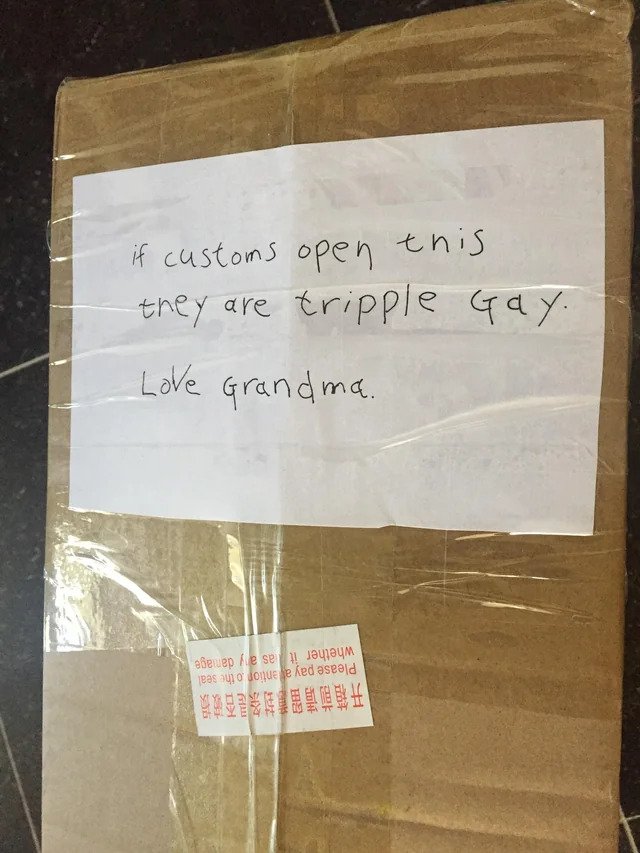 if customs open this
they are tripple Gay.
Love Grandma.
开箱前请留意封条是否破损
Please pay attention to the seal
whether it has any damage